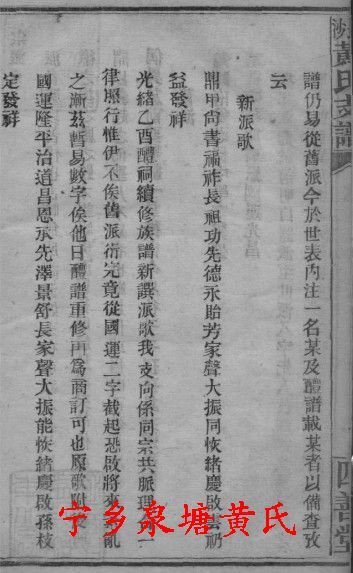 譜仍易從舊派今於世表內注一名某及醴譜載某者以備查攷
云
新派歌
鼎甲尚書福祚長祖功先德永貽芳家聲大振同恢緒慶啟雲礽
益發祥
光緒乙酉醴祠續修族譜新譔派歌我支向係同宗共脈理一
律照行惟伊不俟舊派衍完竟從國運二字截起恐啟將來亂
之漸茲暫易數字俟他日醴譜重修再為商訂可也原歌附
國運隆平治道昌恩承先澤景舒長家聲大振能恢緒慶啟孫枝
定發祥
黃氏支譜
四善堂
宁乡泉塘黄氏